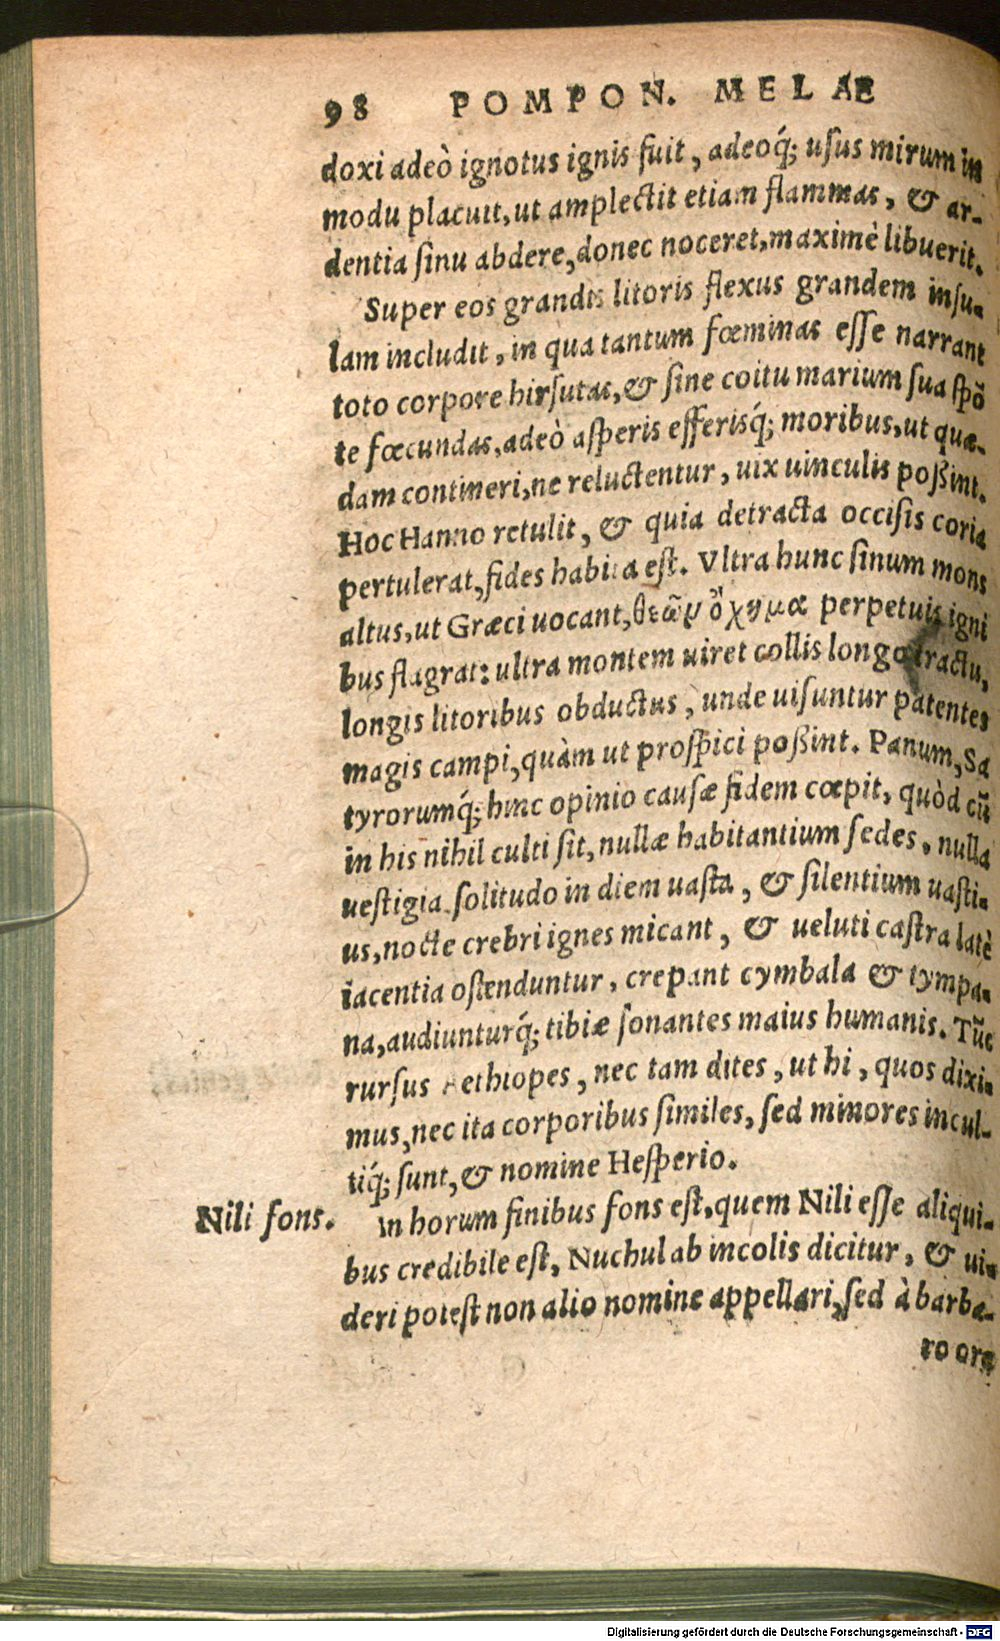 98 POMPON. MELAE
doxi adeò ignotus ignis fuit, adeoq́; usus mirum in
modu placuit, ut amplectit etiam flammas, & ar-
dentia sinu abdere, donec noceret, maximè libuerit.
Super eos grandis litoris flexus grandem insu-
lam includit, in qua tantum fœminas esse narrant
toto corpore hirsutas, & sine coitu marium sua spõ
te fœcundas, adeò asperis efferisq́; moribus, ut quæ-
dam contineri, ne reluctentur, uix uinculis poßint.
Hoc Hanno retulit, & quia detracta occisis coria
pertulerat, fides habita est. Vltra hunc sinum mons
altus, ut Græci uocant, θεῶν ὄχημα perpetuis igni
bus flagrat: ultra montem uiret collis longo tractu,
longis litoribus obductus, unde uisuntur patentes
magis campi, quàm ut prospici poßint. Panum, Sa
tyrorumq́; hinc opinio causæ fidem cœpit, quòd cũ
in his nihil culti sit, nullæ habitantium sedes, nulla
uestigia solitudo in diem uasta, & silentium uasti-
us, nocte crebri ignes micant, & ueluti castra latè
iacentia ostenduntur, crepant cymbala & tympa-
na, audiunturq́; tibiæ sonantes maius humanis. Tũc
rursus Aethiopes, nec tam dites, ut hi, quos dixi-
mus, nec ita corporibus similes, sed minores incul-
tiq́; sunt, & nomine Hesperio.
Nili fons. In horum finibus fons est, quem Nili esse aliqui-
bus credibile est, Nuchul ab incolis dicitur, & ui-
deri potest non alio nomine appellari, sed à barba-
ro ore
Digitalisierung gefördert durch die Deutsche Forschungsgemeinschaft - DFG